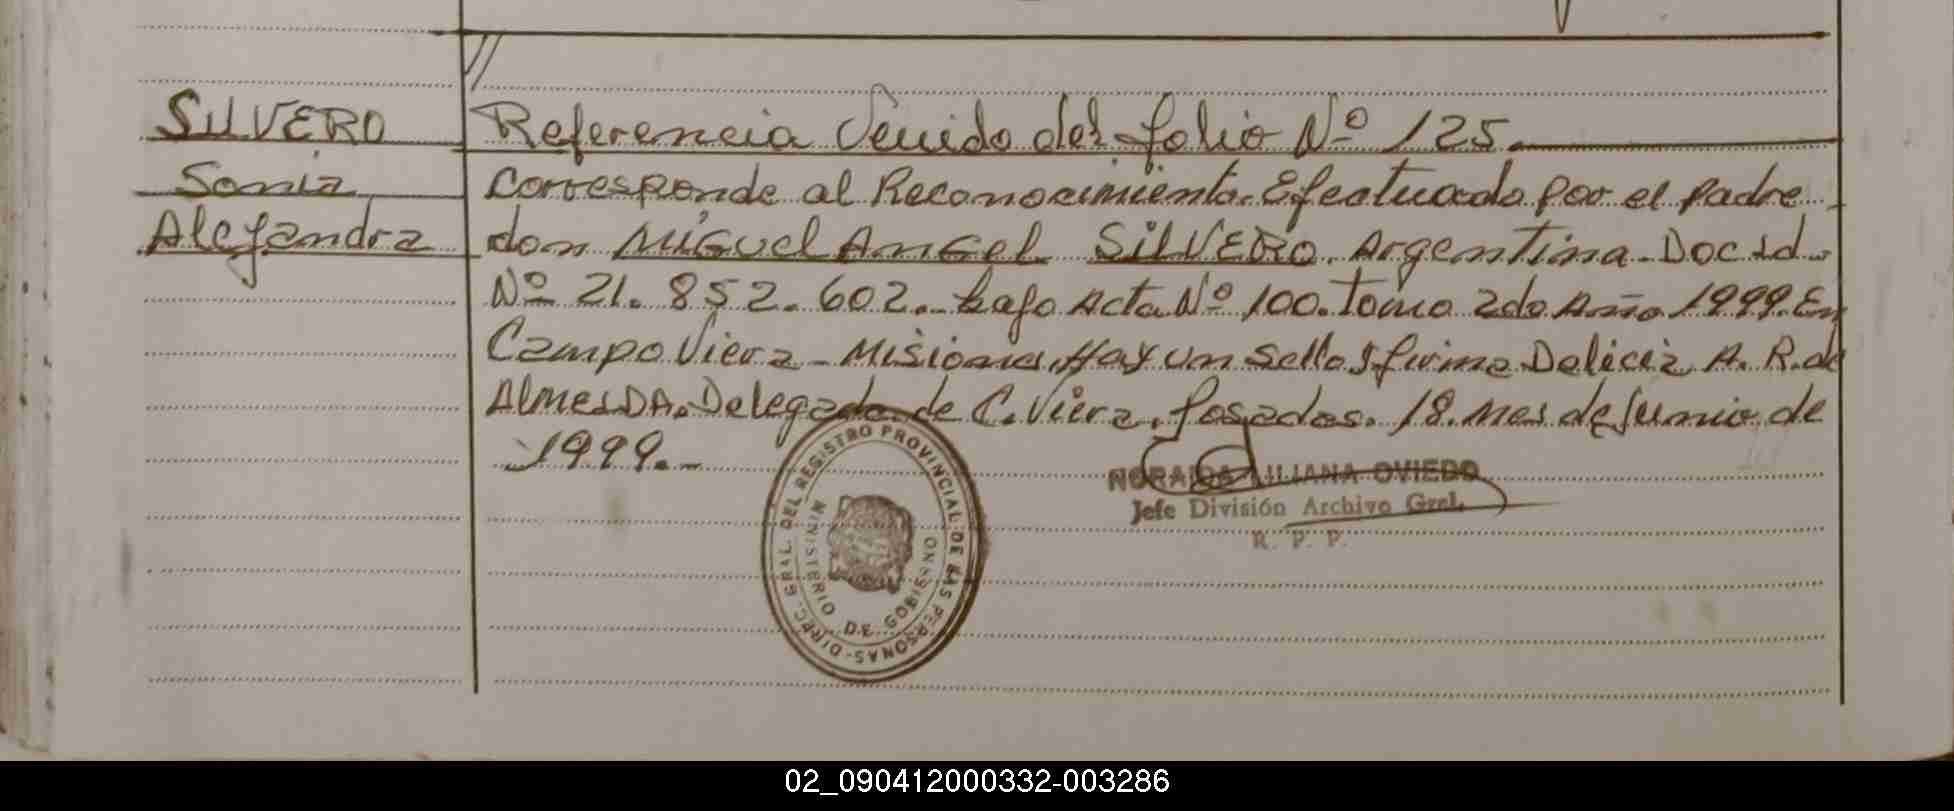 SILVERO
Sonia
Alejandra
//
Referencia Venido del folio Nº 125.
Corresponde al Reconocimiento. Efectuado por el padre
don Miguel Angel SILVERO. Argentina. Doc id.
Nº 21.852.602.- bajo Acta Nº 100. Tomo 2do Año 1999. En
Campo Viera - Misiones. Hay un sello y firma Delicia A. R. de
ALMEIDA. Delegada de C. Viera. Posadas. 18. mes de Junio de
1999.-
DIREC. GRAL. DEL REGISTRO PROVINCIAL DE LAS PERSONAS-
MINISTERIO DE GOBIERNO
NORAIDA LILIANA OVIEDO
Jefe División Archivo Gral.
R. P. P.
02_090412000332-003286